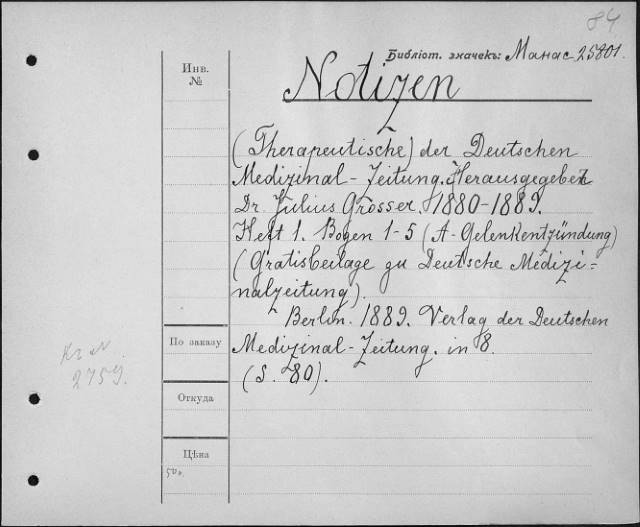 84
Библіот. значекъ: Манас 25801.
Инв.
№
Notizen
(Therapeutische) der Deutschen
Medizinal-Zeitung. Herausgegeben
Dr. Julius Grosser. 1880-1889.
Heft 1. Bogen 1-5 (A-Gelenkentzündung)
(Gratisbeilage zu Deutsche Medizi=
nalzeitung).
Berlin. 1889. Verlag der Deutschen
По заказу
Medizinal-Zeitung. in 8.
(S. 80).
Kr N
2759.
Откуда
Цѣна